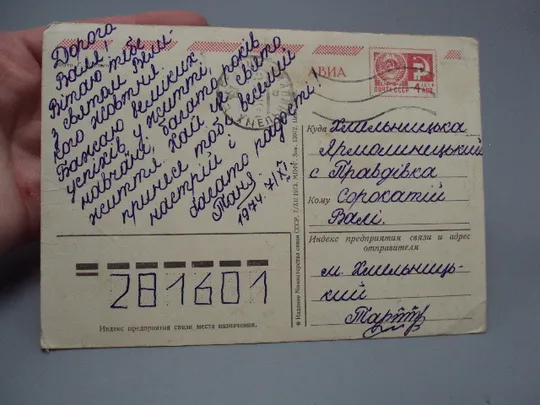 Дорога
Валя!
Вітаю тебе
з святом Вели-
кого Жовтня.
Бажаю великих
успіхів у житті,
навчанні, багато років
життя. Хай це свято
принесе тобі веселий
настрій і
багато радості.
Таня.
1974. XI.
АВИА
ПОЧТА СССР
4
Куда Хмельницька
Ярмолинецький
с Правдівка
Кому Сорокатій
Валі.
Индекс предприятия связи и адрес
отправителя
м. Хмельниць-
кий
281601
Индекс предприятия связи места назначения.
© Издание Министерства связи СССР.